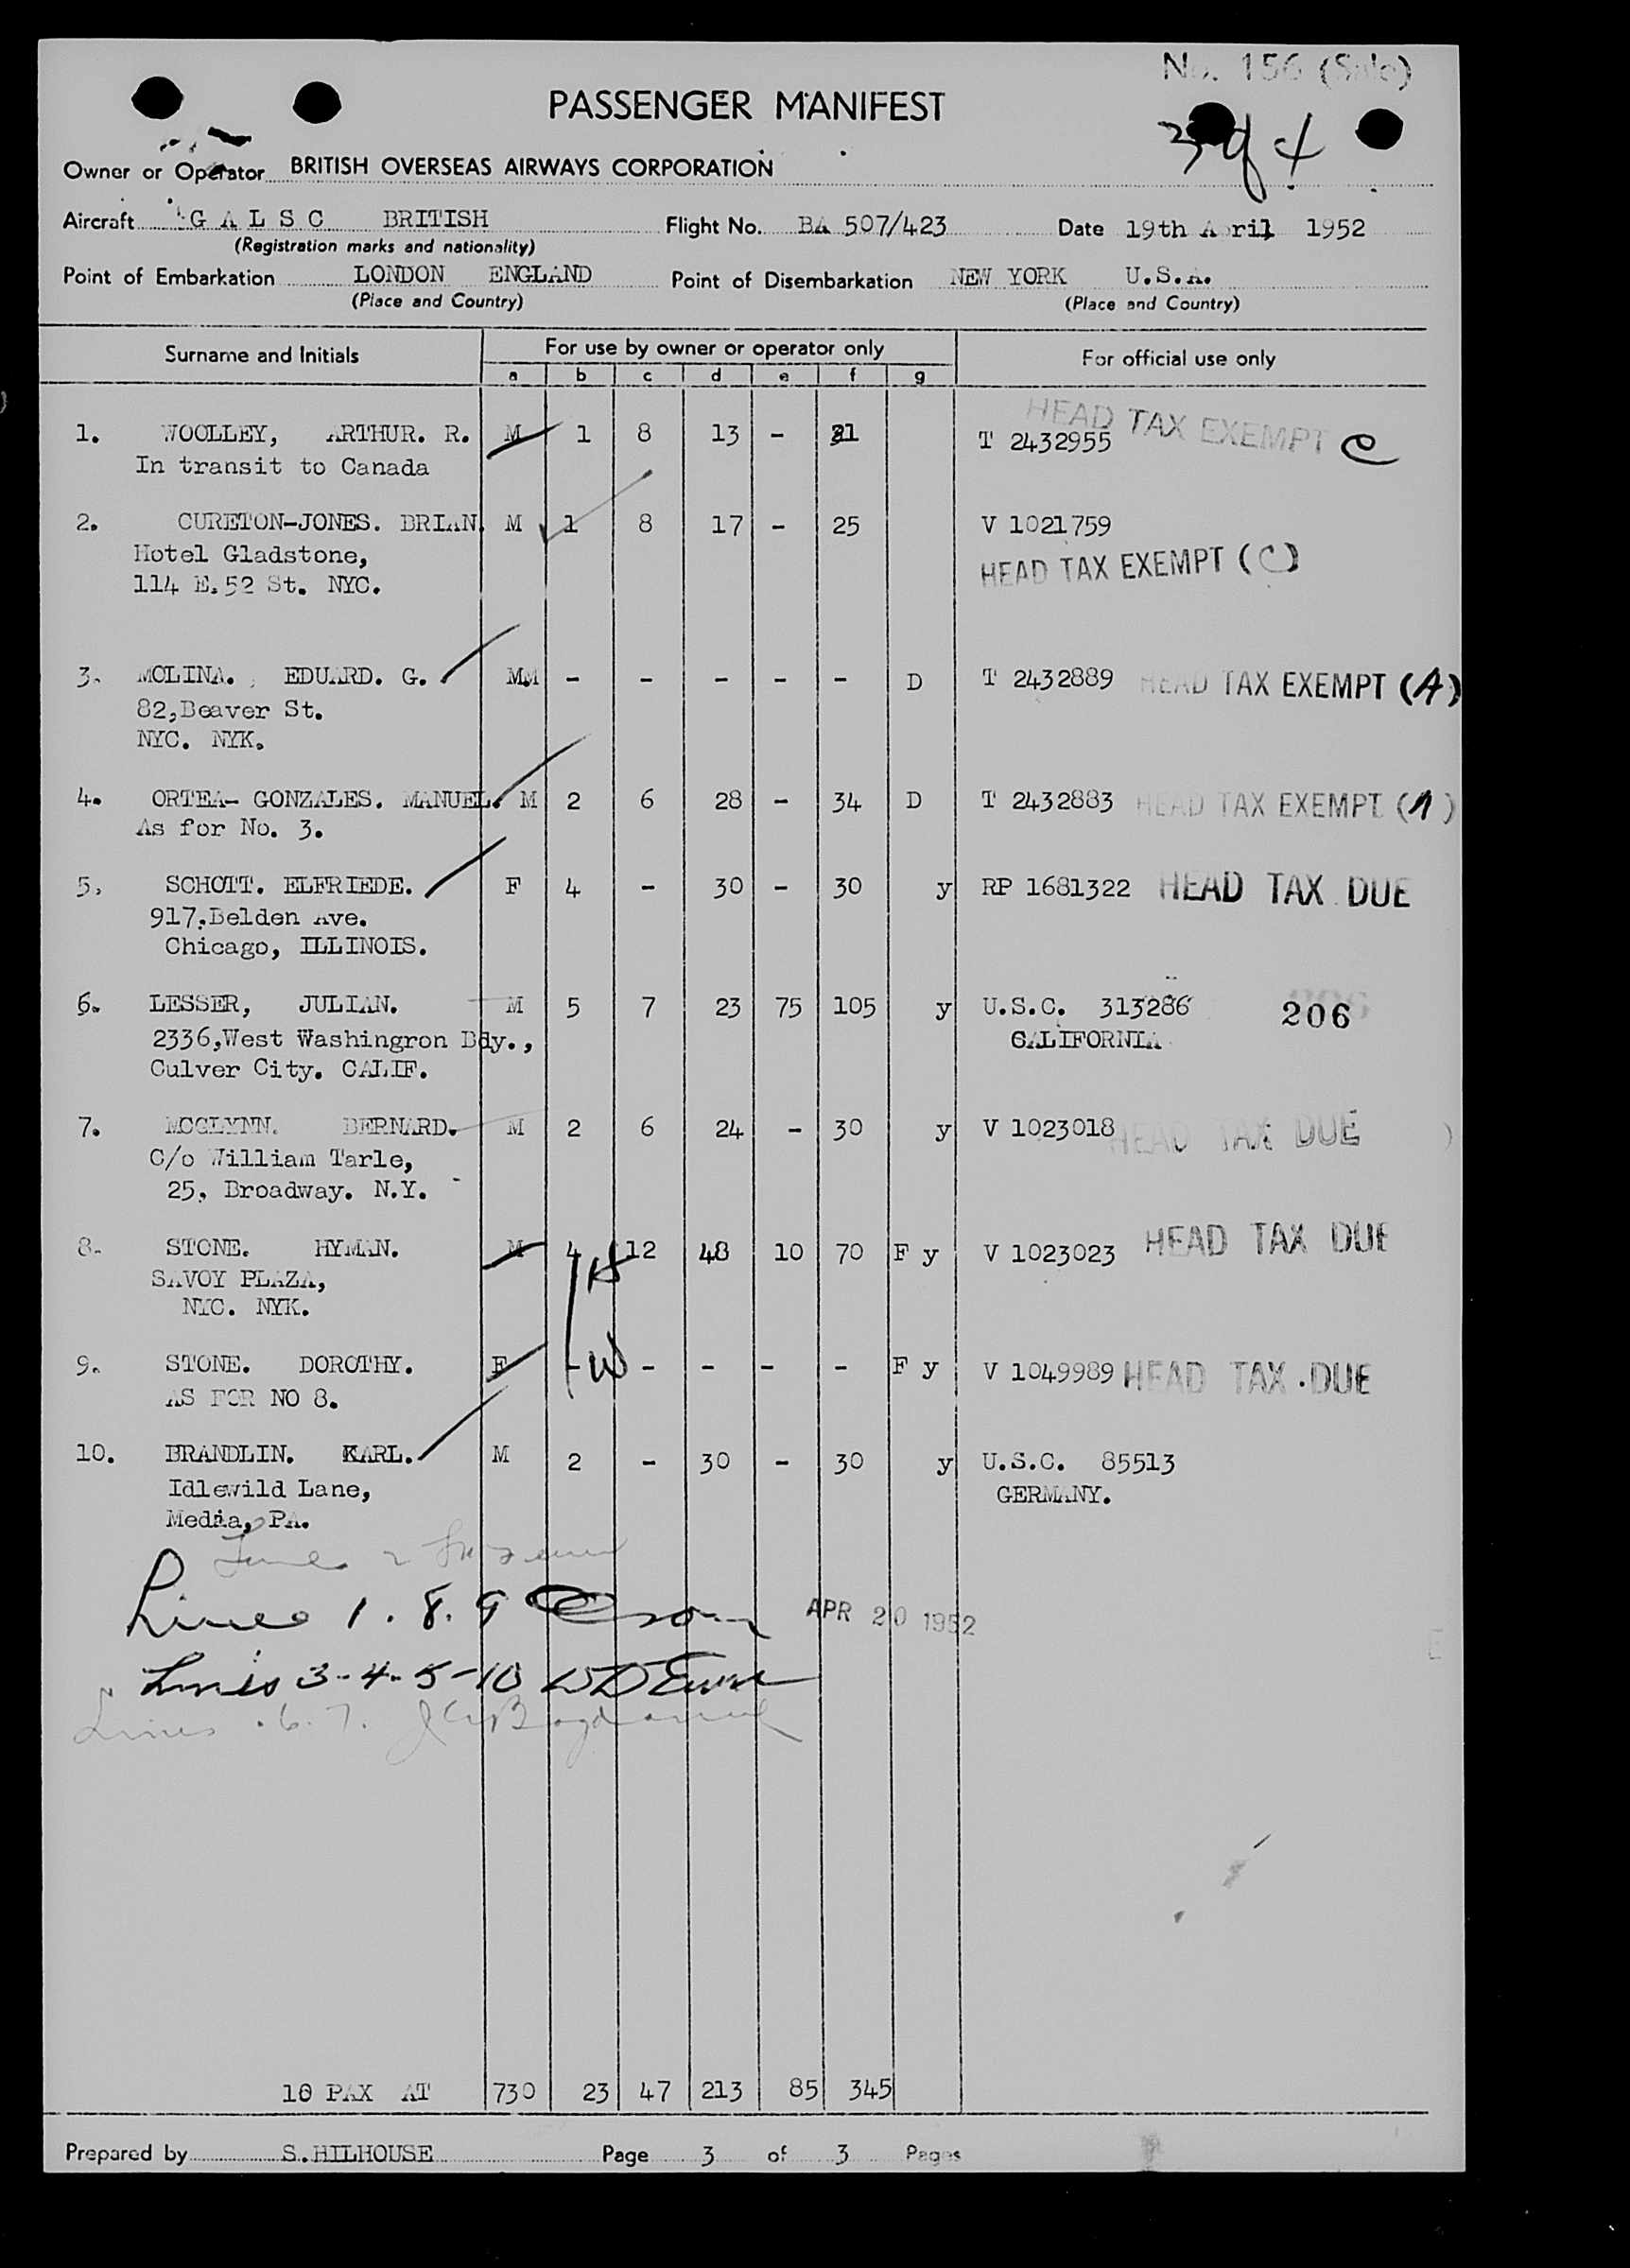 No. 156 (Sale)
PASSENGER MANIFEST
3 of 4
Owner or Operator BRITISH OVERSEAS AIRWAYS CORPORATION
Aircraft G A L S C BRITISH Flight No. BA 507/423 Date 19th April 1952
(Registration marks and nationality)
Point of Embarkation LONDON ENGLAND Point of Disembarkation NEW YORK U.S.A.
(Place and Country) (Place and Country)
Surname and Initials For use by owner or operator only For official use only
a b c d e f g
HEAD TAX EXEMPT C
1. WOOLLEY, ARTHUR. R. M 1 8 13 - 21 T 2432955
In transit to Canada
2. CURETON-JONES. BRIAN. M 1 8 17 - 25 V 1021759
Hotel Gladstone, HEAD TAX EXEMPT (C)
114 E.52 St. NYC.
3. MOLINA. EDUARD. G. MM - - - - - D T 2432889 HEAD TAX EXEMPT (A)
82,Beaver St.
NYC. NYK.
4. ORTEA- GONZALES. MANUEL. M 2 6 28 - 34 D T 2432883 HEAD TAX EXEMPT (A)
As for No. 3.
5. SCHOTT. ELFRIEDE. F 4 - 30 - 30 y RP 1681322 HEAD TAX DUE
917,Belden Ave.
Chicago, ILLINOIS.
6. LESSER, JULIAN. M 5 7 23 75 105 y U.S.C. 313286 206
2336,West Washingron Bdy., CALIFORNIA
Culver City. CALIF.
7. MCGLYNN. BERNARD. M 2 6 24 - 30 y V 1023018 HEAD TAX DUE
C/o William Tarle,
25, Broadway. N.Y.
8. STONE. HYMAN. M 4 12 48 10 70 F y V 1023023 HEAD TAX DUE
SAVOY PLAZA, H
NYC. NYK.
9. STONE. DOROTHY. F - W - - - - F y V 1049989 HEAD TAX DUE
AS FOR NO 8.
10. BRANDLIN. KARL. M 2 - 30 - 30 y U.S.C. 85513
Idlewild Lane, GERMANY.
Media, PA.
Line 2
Lines 1. 8. 9 APR 20 1952
Lines 3-4-5-10
Lines 6. 7.
10 PAX AT 730 23 47 213 85 345
Prepared by S.HILHOUSE Page 3 of 3 Pages